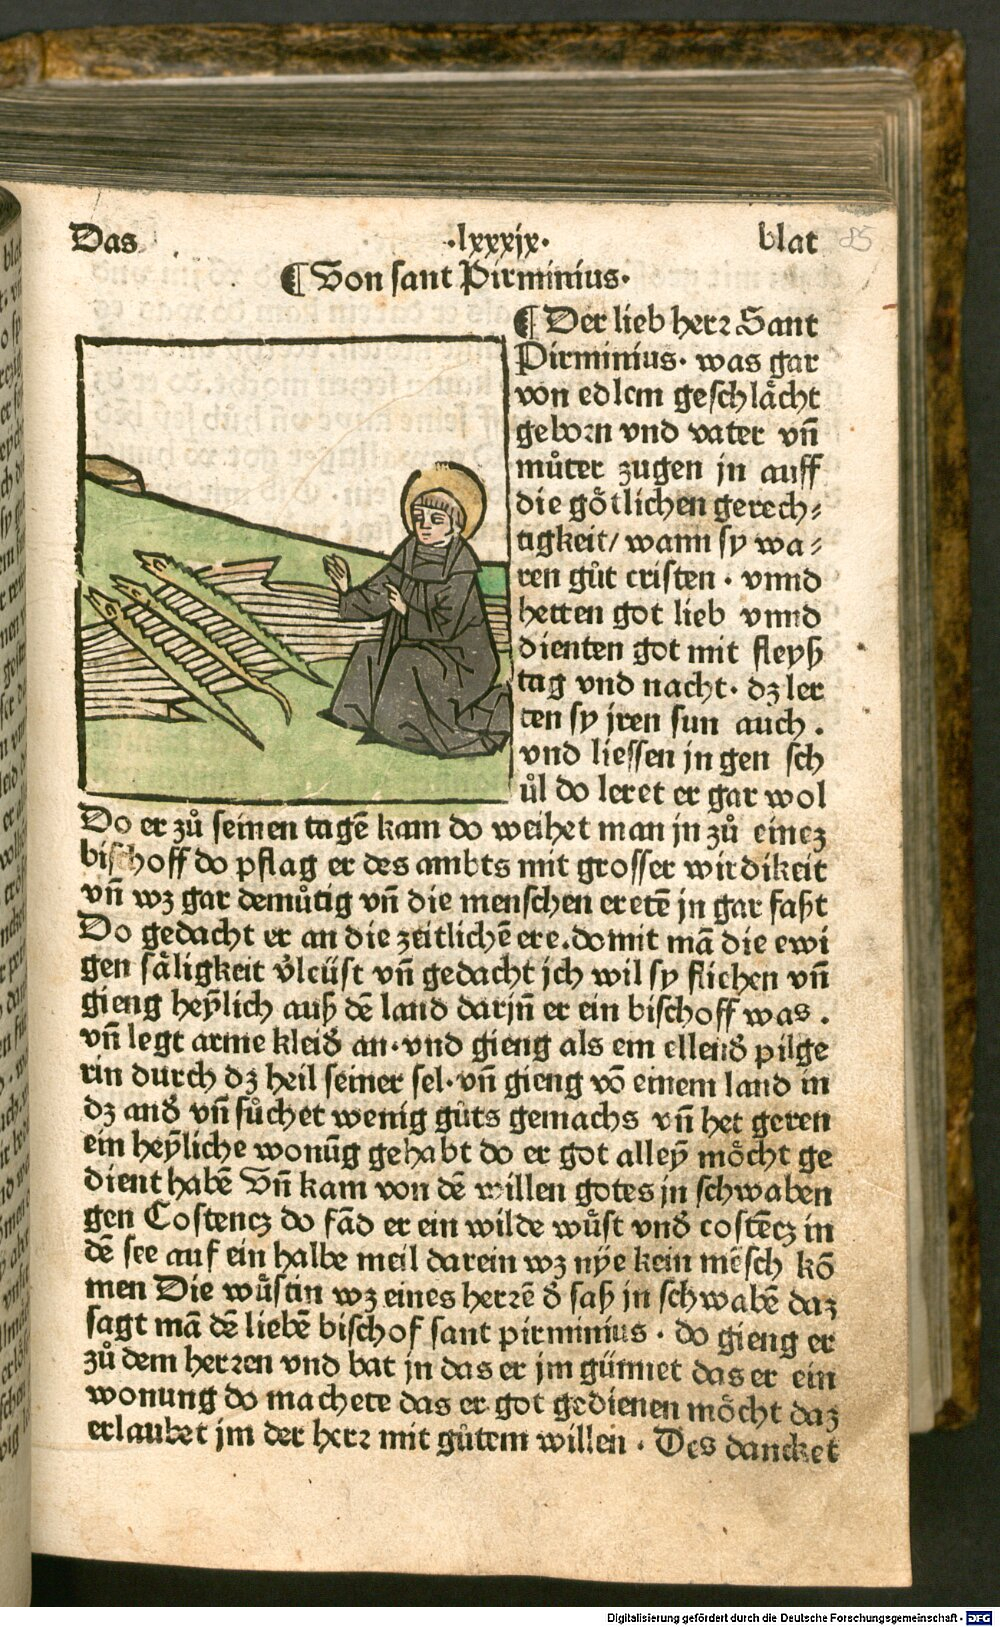 Das ·lxxxix· blat 85
¶ Von sant Pirminius·
¶ Der lieb herr Sant
Pirminius· was gar
von edlem geschlächt
geborn vnd vater vñ
můter zugen jn auff
die götlichen gerech⸗
tigkeit/ wann sy wa⸗
ren gůt cristen · vnnd
hetten got lieb vnnd
dienten got mit fleyß
tag vnd nacht· dz ler
ten sy jren sun auch .
vnd liessen jn gen sch
ůl do leret er gar wol
Do er zů seinen tagē kam do weihet man jn zů einez
bischoff do pflag er des ambts mit grosser wirdikeit
vñ wz gar demůtig vñ die menschen eretē jn gar faßt
Do gedacht er an die zeitlichē ere.domit mā die ewi
gen säligkeit v̓leüst vñ gedacht jch wil sy fliehen vñ
gieng heÿlich auß dē land darjn̄ er ein bischoff was .
vñ legt arme kleid̓ an·vnd gieng als ein ellend̓ pilge
rin durch dz heil seiner sel·vñ gieng vō einem land in
dz and̓ vñ sůchet wenig gůts gemachs vñ het geren
ein heÿliche wonūg gehabt do er got alleÿ möcht ge
dient habē Vñ kam von dē willen gotes jn schwaben
gen Costencz do fād er ein wilde wůst vnd̓ costēcz in
dē see auf ein halbe meil darein wz nÿe kein mēsch kō
men Die wůstin wz eines herrē d̓ saß jn schwabē daz
sagt mā dē liebē bischof sant pirminius · do gieng er
zů dem herren vnd bat jn das er jm günnet das er ein
wonung do machete das er got gedienen möcht daz
erlaubet jm der herr mit gůtem willen . Des dancket
Digitalisierung gefördert durch die Deutsche Forschungsgemeinschaft - DFG